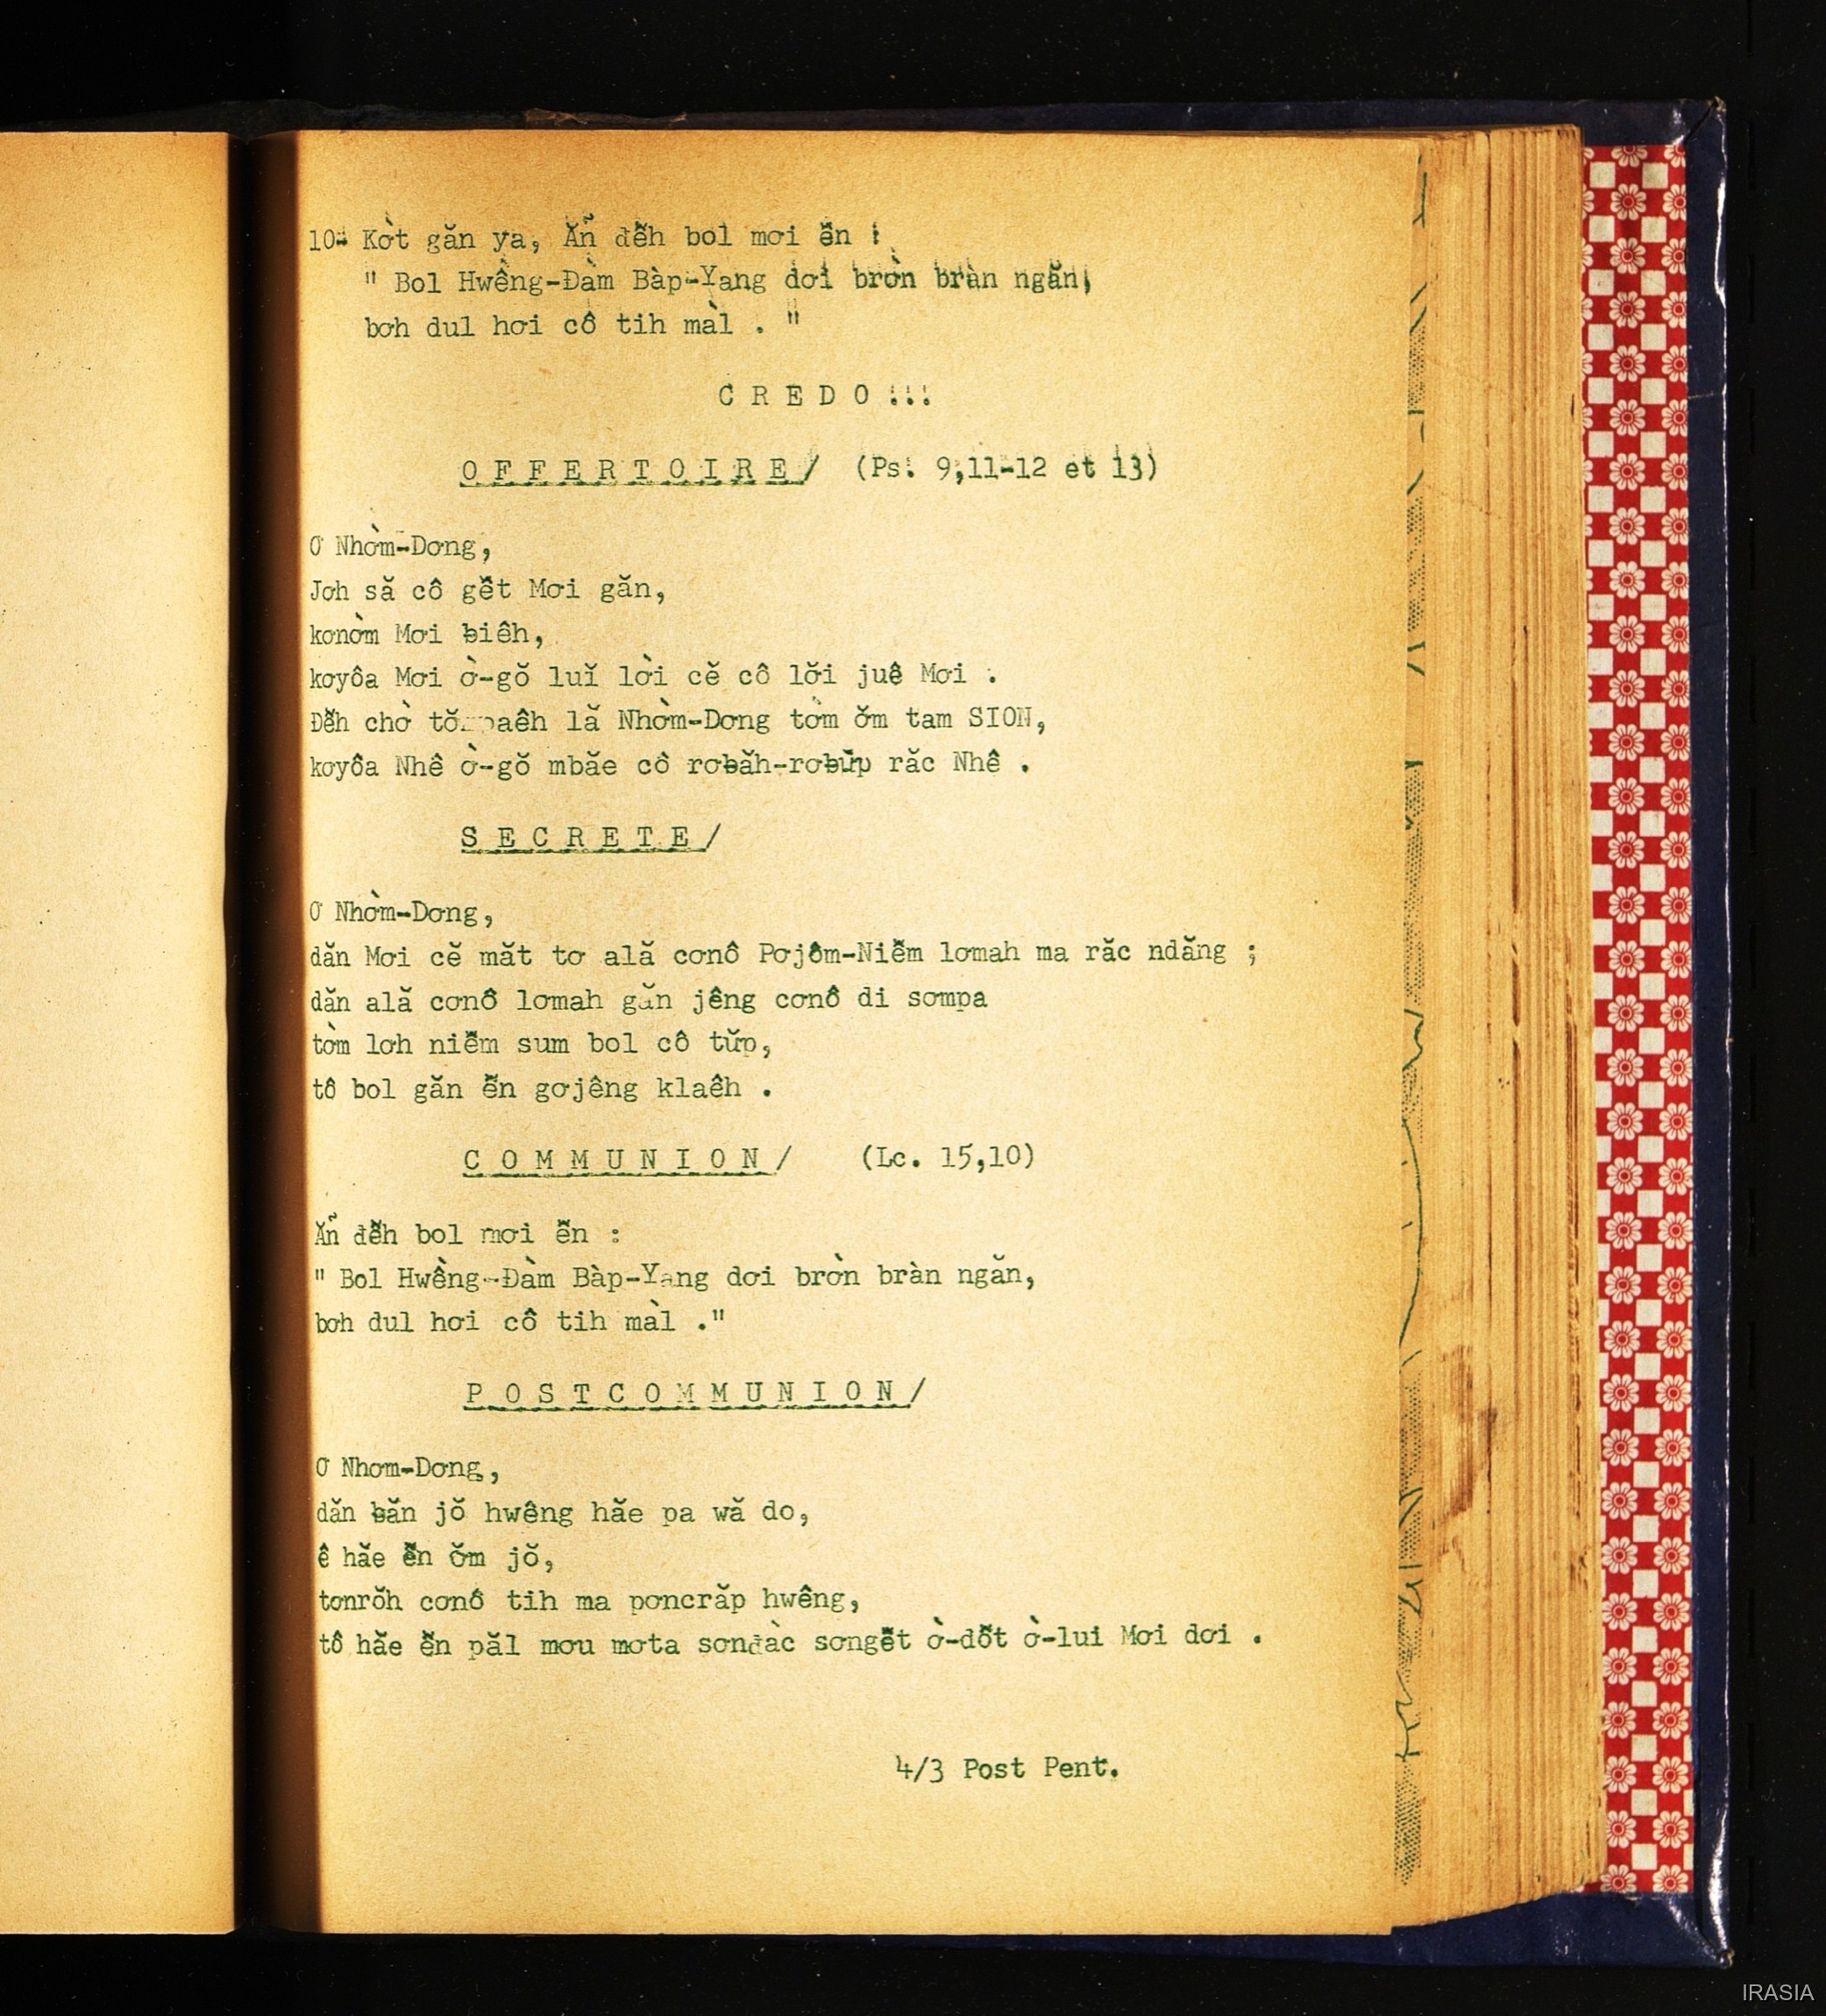 10- Kờt găn ya, Ẵn đễh bol mơi ễn :
" Bol Hwềng-Đàm Bàp-Yang dơi brờn bràn ngăn,
bơh dul hơi cô tih màl . "
C R E D O !!!
O F F E R T O I R E / (Ps. 9,11-12 et 13)
Ơ Nhờm-Dơng,
Jơh să cô gết Mơi găn,
kơnờm Mơi ƀiêh,
kơyôa Mơi ờ-gŏ luĭ lời cĕ cô lơ̆i juê Mơi .
Đễh chờ lă Nhờm-Dơng tờm ơ̆m tam SION,
kơyôa Nhê ờ-gŏ mbăe cồ rơƀăh-rơƀŭp răc Nhê .
S E C R E T E /
Ơ Nhờm-Dơng,
dăn Mơi cĕ măt tơ ală cơnô Pơjôm-Niễm lơmah ma răc ndăng ;
dăn ală cơnô lơmah găn jêng cơnô di sơmpa
tờm lơh niễm sum bol cô tŭp,
tô bol găn ễn gơjêng klaêh .
C O M M U N I O N / (Lc. 15,10)
Ẵn đễh bol mơi ễn :
" Bol Hwềng-Đàm Bàp-Yang dơi brờn bràn ngăn,
bơh dul hơi cô tih màl ."
P O S T C O M M U N I O N /
Ơ Nhơm-Dơng,
dăn ƀăn jŏ hwêng hăe pa wă do,
ê hăe ễn ơ̆m jŏ,
tơnrơ̆h cơnô tih ma pơncrăp hwêng,
tô hăe ễn păl mơu mơta sơnđàc sơngết ờ-dốt ờ-lui Mơi dơi .
4/3 Post Pent.
IRASIA